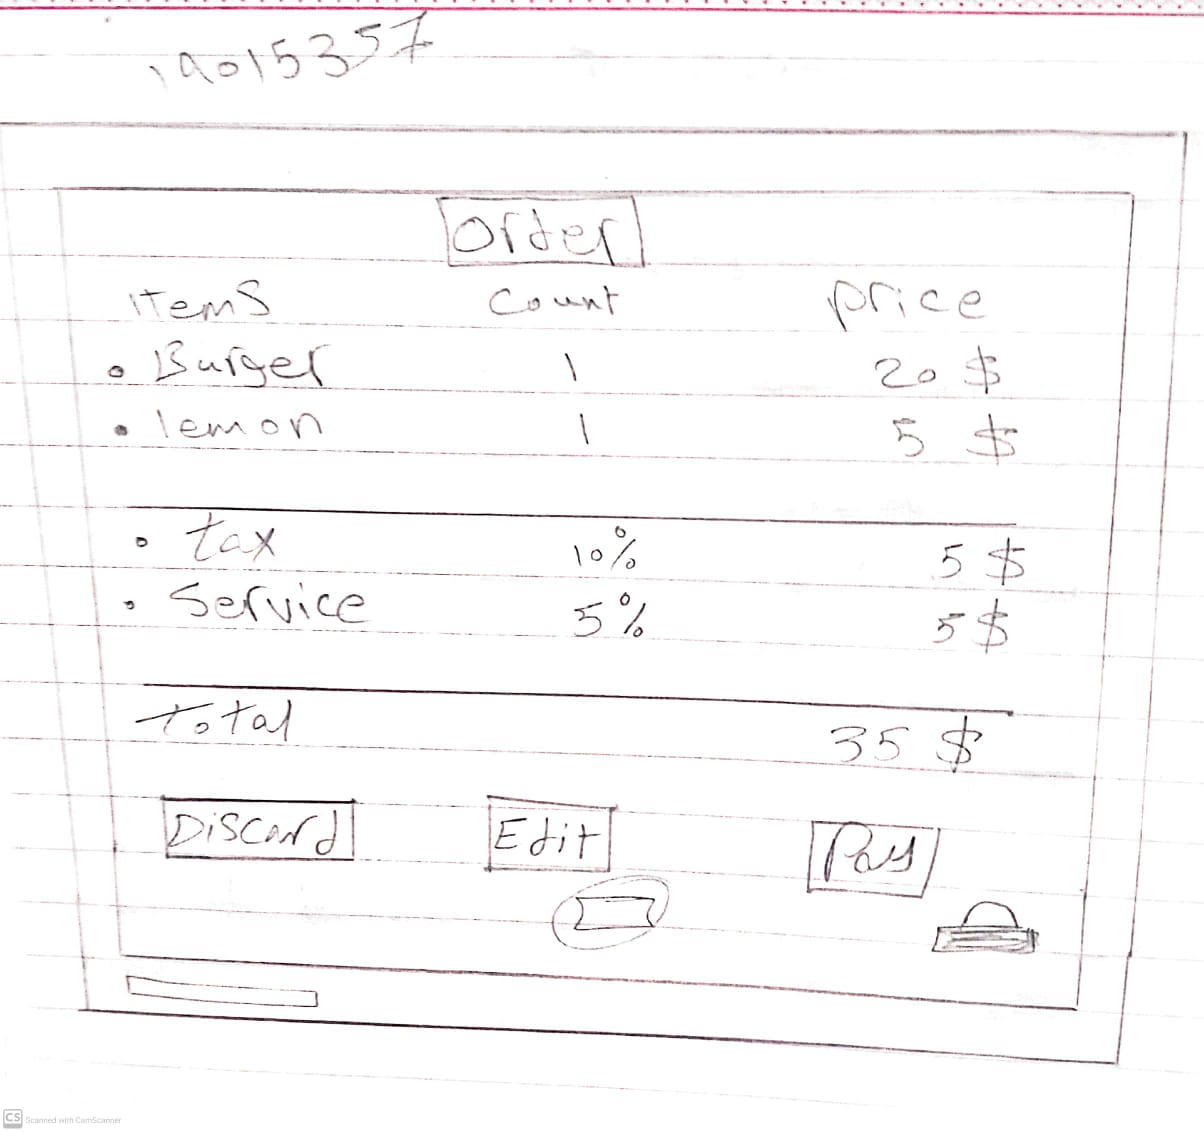 19015357
Order
Items Count price
• Burger 1 20 $
• lemon 1 5 $
• tax 10% 5 $
• Service 5% 5 $
Total 35 $
Discard Edit Pay
CS Scanned with CamScanner